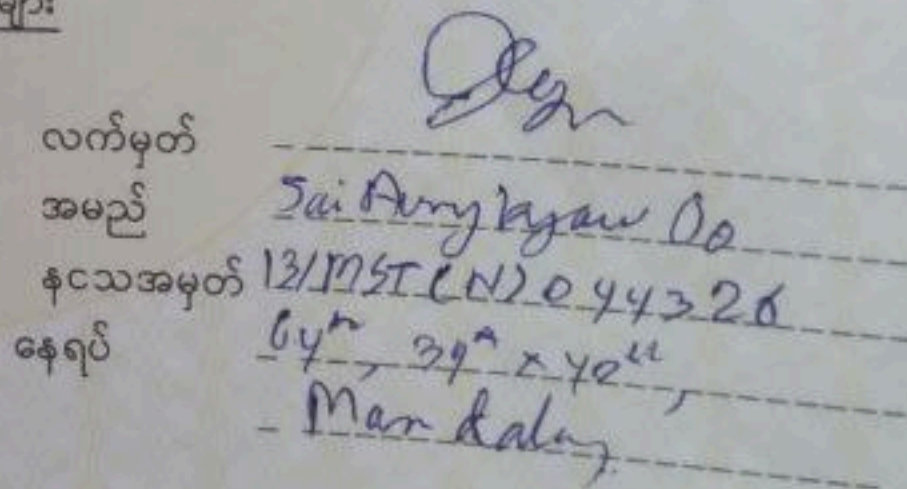 များ
လက်မှတ်
အမည် Sai Aung Kyaw Oo
နငသအမှတ် 13/MST(N)044326
နေရပ် 64ᵗʰ, 39ᴬ × 40ᵗʰ,
Mandalay